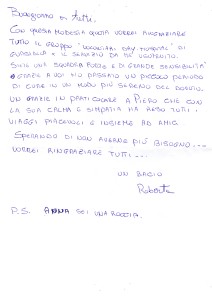 Buongiorno a tutti.
Con questa modesta quota vorrei ringraziare
tutto il gruppo "
e il servizio da voi
Siete una squadra forte e di grande sensibilità
grazie a voi ho passato un piccolo periodo
di cure in un modo più sereno del dovuto.
Un grazie in particolare a Piero che con
la sua calma e simpatia ha reso tutti i
viaggi piacevoli e insieme ad amici.
Sperando di non averne più bisogno...
vorrei ringraziare tutti...
un bacio
Roberta
P.S. Anna sei una roccia.